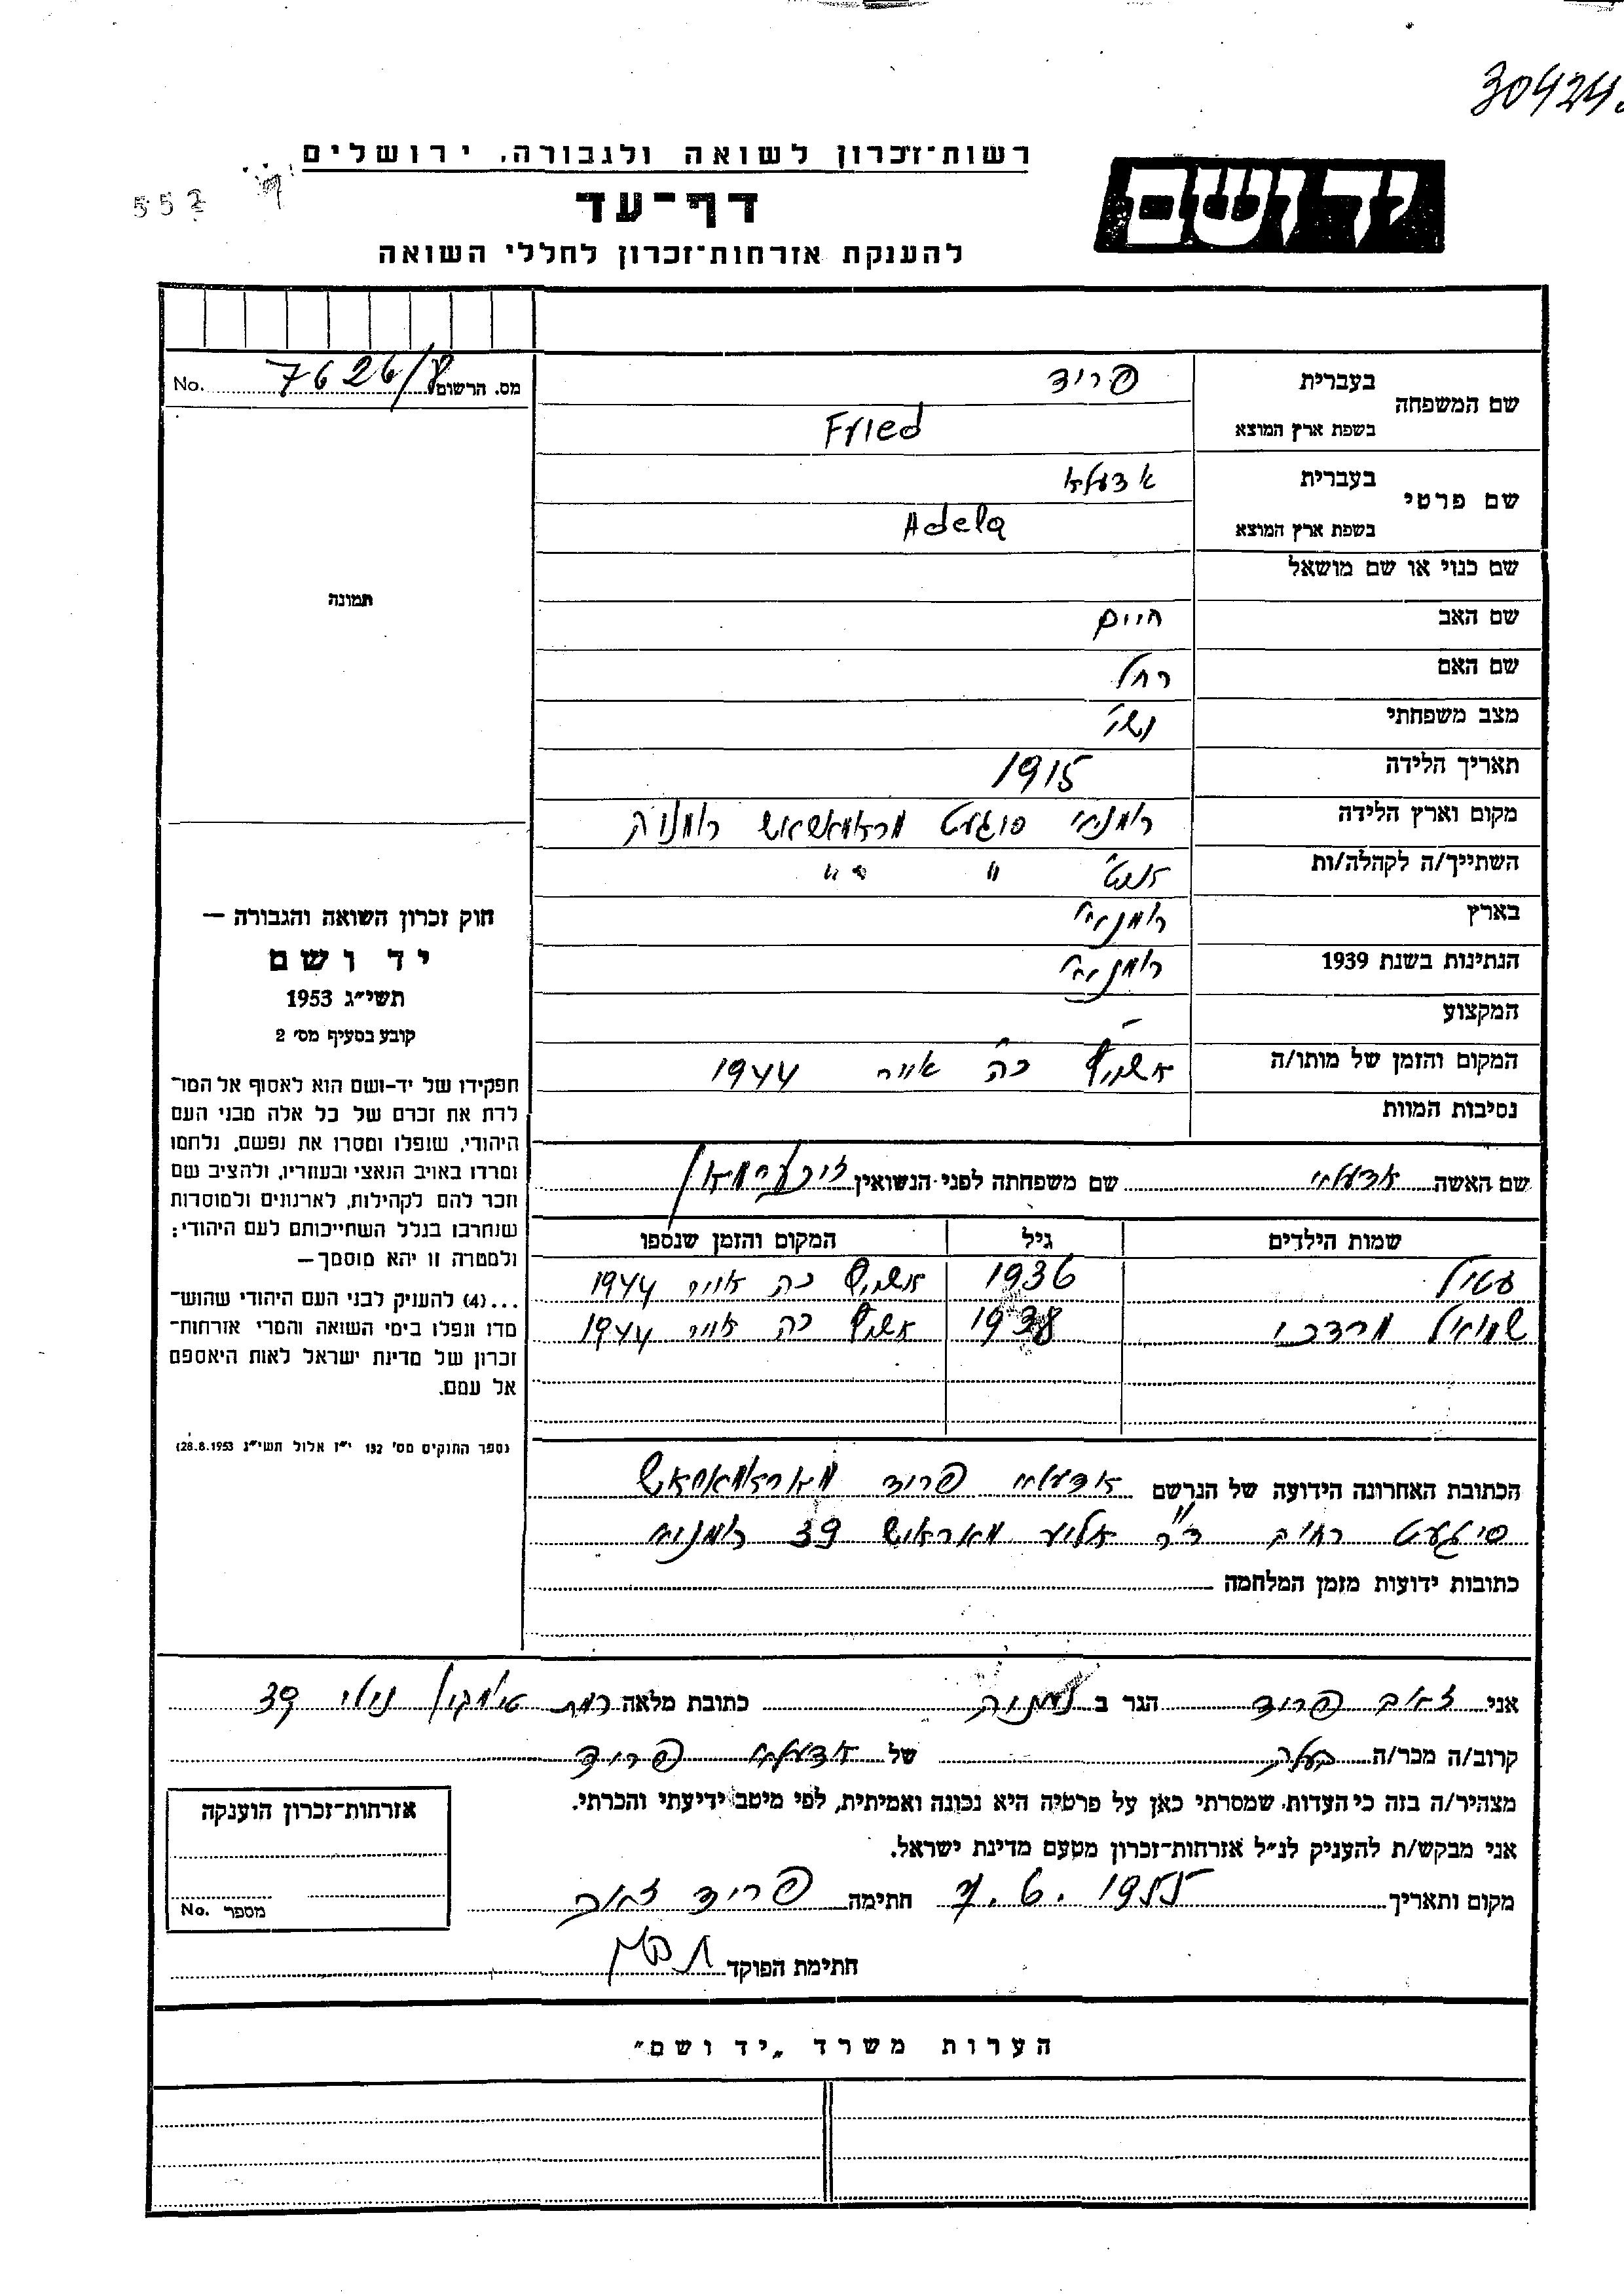 30424
רשות־זכרון לשואה ולגבורה, ירושלים
יד ושם
557
דף־עד
להענקת אזרחות־זכרון לחללי השואה
מס. הרשום 7626/8 No.
שם המשפחה
בעברית פריד
בשפת ארץ המוצא Fried
שם פרטי
בעברית אדעלא
בשפת ארץ המוצא Adela
שם כנוי או שם מושאל
תמונה
שם האב חיים
שם האם רחל
מצב משפחתי נשוי
תאריך הלידה 1915
מקום וארץ הלידה סיגעט
השתייך/ה לקהלה/ות " "
בארץ רומניי
הנתינות בשנת 1939 רומניי
המקצוע –
המקום והזמן של מותו/ה כה אייר 1944
נסיבות המוות
חוק זכרון השואה והגבורה —
יד ושם
תשי״ג 1953
קובע בסעיף מס׳ 2
תפקידו של יד-ושם הוא לאסוף אל המו־
לדת את זכרם של כל אלה מבני העם
היהודי, שנפלו ומסרו את נפשם, נלחמו
ומרדו באויב הנאצי ובעוזריו, ולהציב שם
וזכר להם לקהילות, לארגונים ולמוסדות
שנחרבו בגלל השתייכותם לעם היהודי;
ולמטרה זו יהא מוסמך—
...(4) להענק לבני העם היהודי שהוש־
מדו ונפלו בימי השואה והמרי אזרחות־
זכרון של מדינת ישראל לאות היאספם
אל עמם.
(ספר החוקים מס׳ 132 י״ז אלול תשי״ג 28.8.1953)
שם האשה אדעלא שם משפחתה לפני הנשואין
שמות הילדים גיל המקום והזמן שנספו
1936 כה אייר 1944
שמואל מרדכי 1938 כה אייר 1944
הכתובת האחרונה הידועה של הנרשם אדעלא פריד
סיגעט רחוב ד״ר 39
כתובות ידועות מזמן המלחמה
אני זאב פריד הגר ב נתניה כתובת מלאה רמת נוילי 39
קרוב/ה מכר/ה בעלה של אדעלא פריד
מצהיר/ה בזה כי העדות שמסרתי כאן על פרטיה היא נכונה ואמיתית, לפי מיטב ידיעתי והכרתי.
אני מבקש/ת להעניק לנ״ל אזרחות־זכרון מטעם מדינת ישראל.
מקום ותאריך 7.6.1955 חתימה פריד זאב
חתימת הפוקד
אזרחות־זכרון הוענקה
מספר No.
הערות משרד „יד ושם״